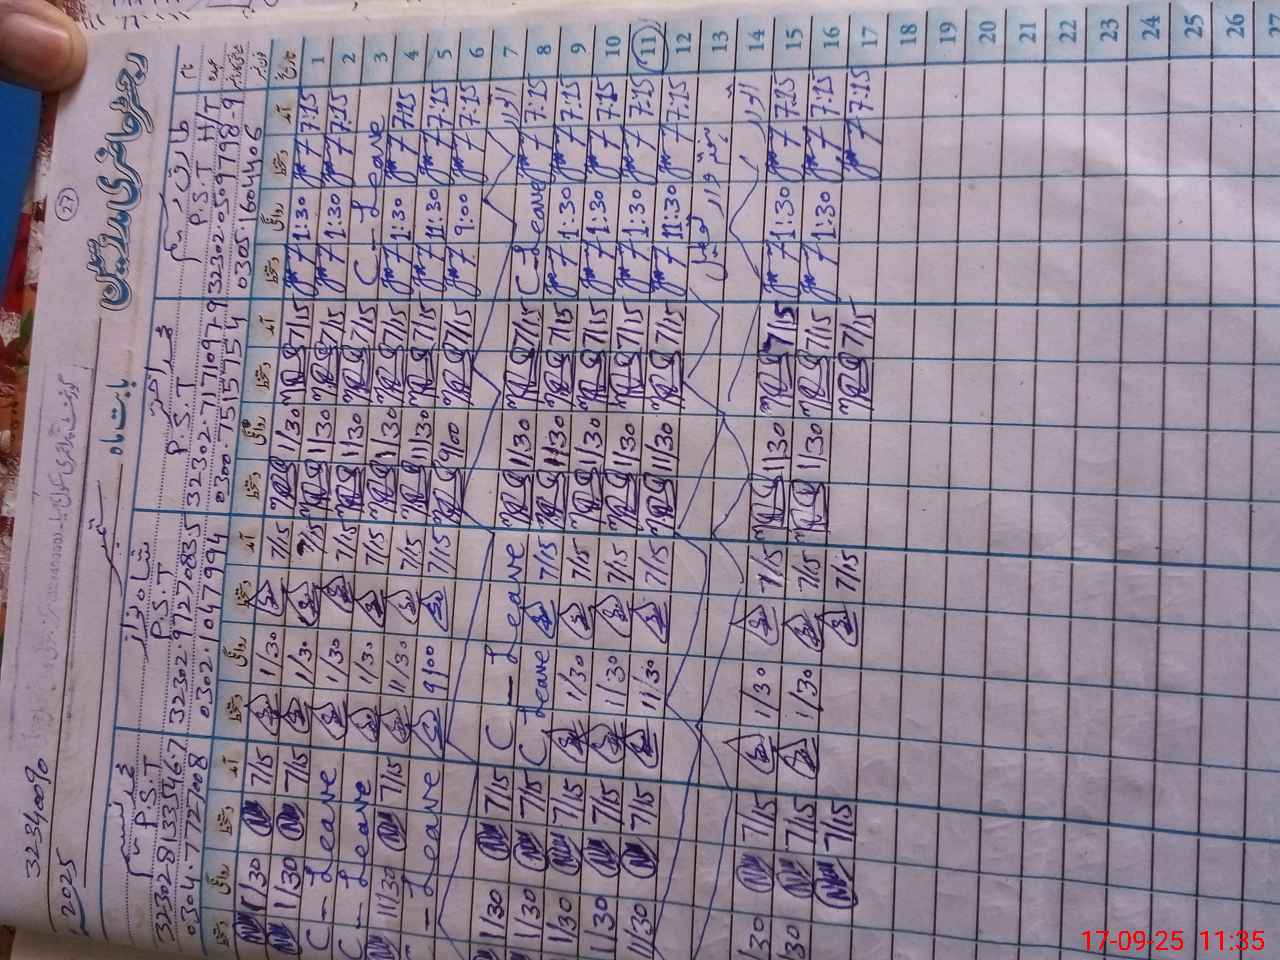 27
3234009
رجسٹر حاضری مدرسین
بابت ماہ ستمبر 2025
نام طارق P.S.T H/T
32302.0509798-9
0305.1604406
P.S.T
32302.7171097-9
0300.7515754
شاہنواز P.S.T
32302.9727083-5
0302.1047994
P.S.T
32302-8133346-7
0304-7721008
تاریخ آمد دستخط روانگی دستخط آمد دستخط روانگی دستخط آمد دستخط روانگی دستخط آمد دستخط روانگی دستخط
1 7:15 1:30 7/15 1/30 7/15 1/30 7/15 1/30
2 7:15 1:30 7/15 1/30 7/15 1/30 7/15 1/30
3 C - Leave 7/15 1/30 7/15 1/30 C - Leave
4 7:15 1:30 7/15 1/30 7/15 1/30 C - Leave
5 7:15 11:30 7/15 11/30 7/15 11/30 7/15 11/30
6 7:15 9:00 7/15 9/00 7/15 9/00 - Leave
7 اتوار
8 7:15 C-Leave 7/15 1/30 C - Leave 7/15 1/30
9 7:15 1:30 7/15 1/30 7/15 C Leave 7/15 1/30
10 7:15 1:30 7/15 1/30 7/15 1/30 7/15 1/30
11 7:15 1:30 7/15 1/30 7/15 11/30 7/15 1/30
12 7:15 11:30 7/15 11/30 7/15 11/30 7/15 11/30
13 ہفتہ وار تعطیل
14 اتوار
15 7:15 1:30 7/15 1/30 7/15 1/30 7/15 1/30
16 7:15 1:30 7/15 1/30 7/15 1/30 7/15 1/30
17 7:15 7/15 7/15 7/15
18
19
20
21
22
23
24
25
26
27
17-09-25 11:35